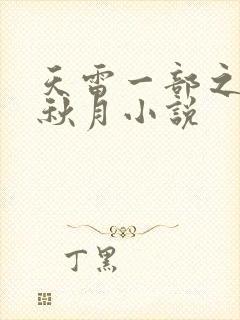 天雷一部之
秋月小説
丁黑